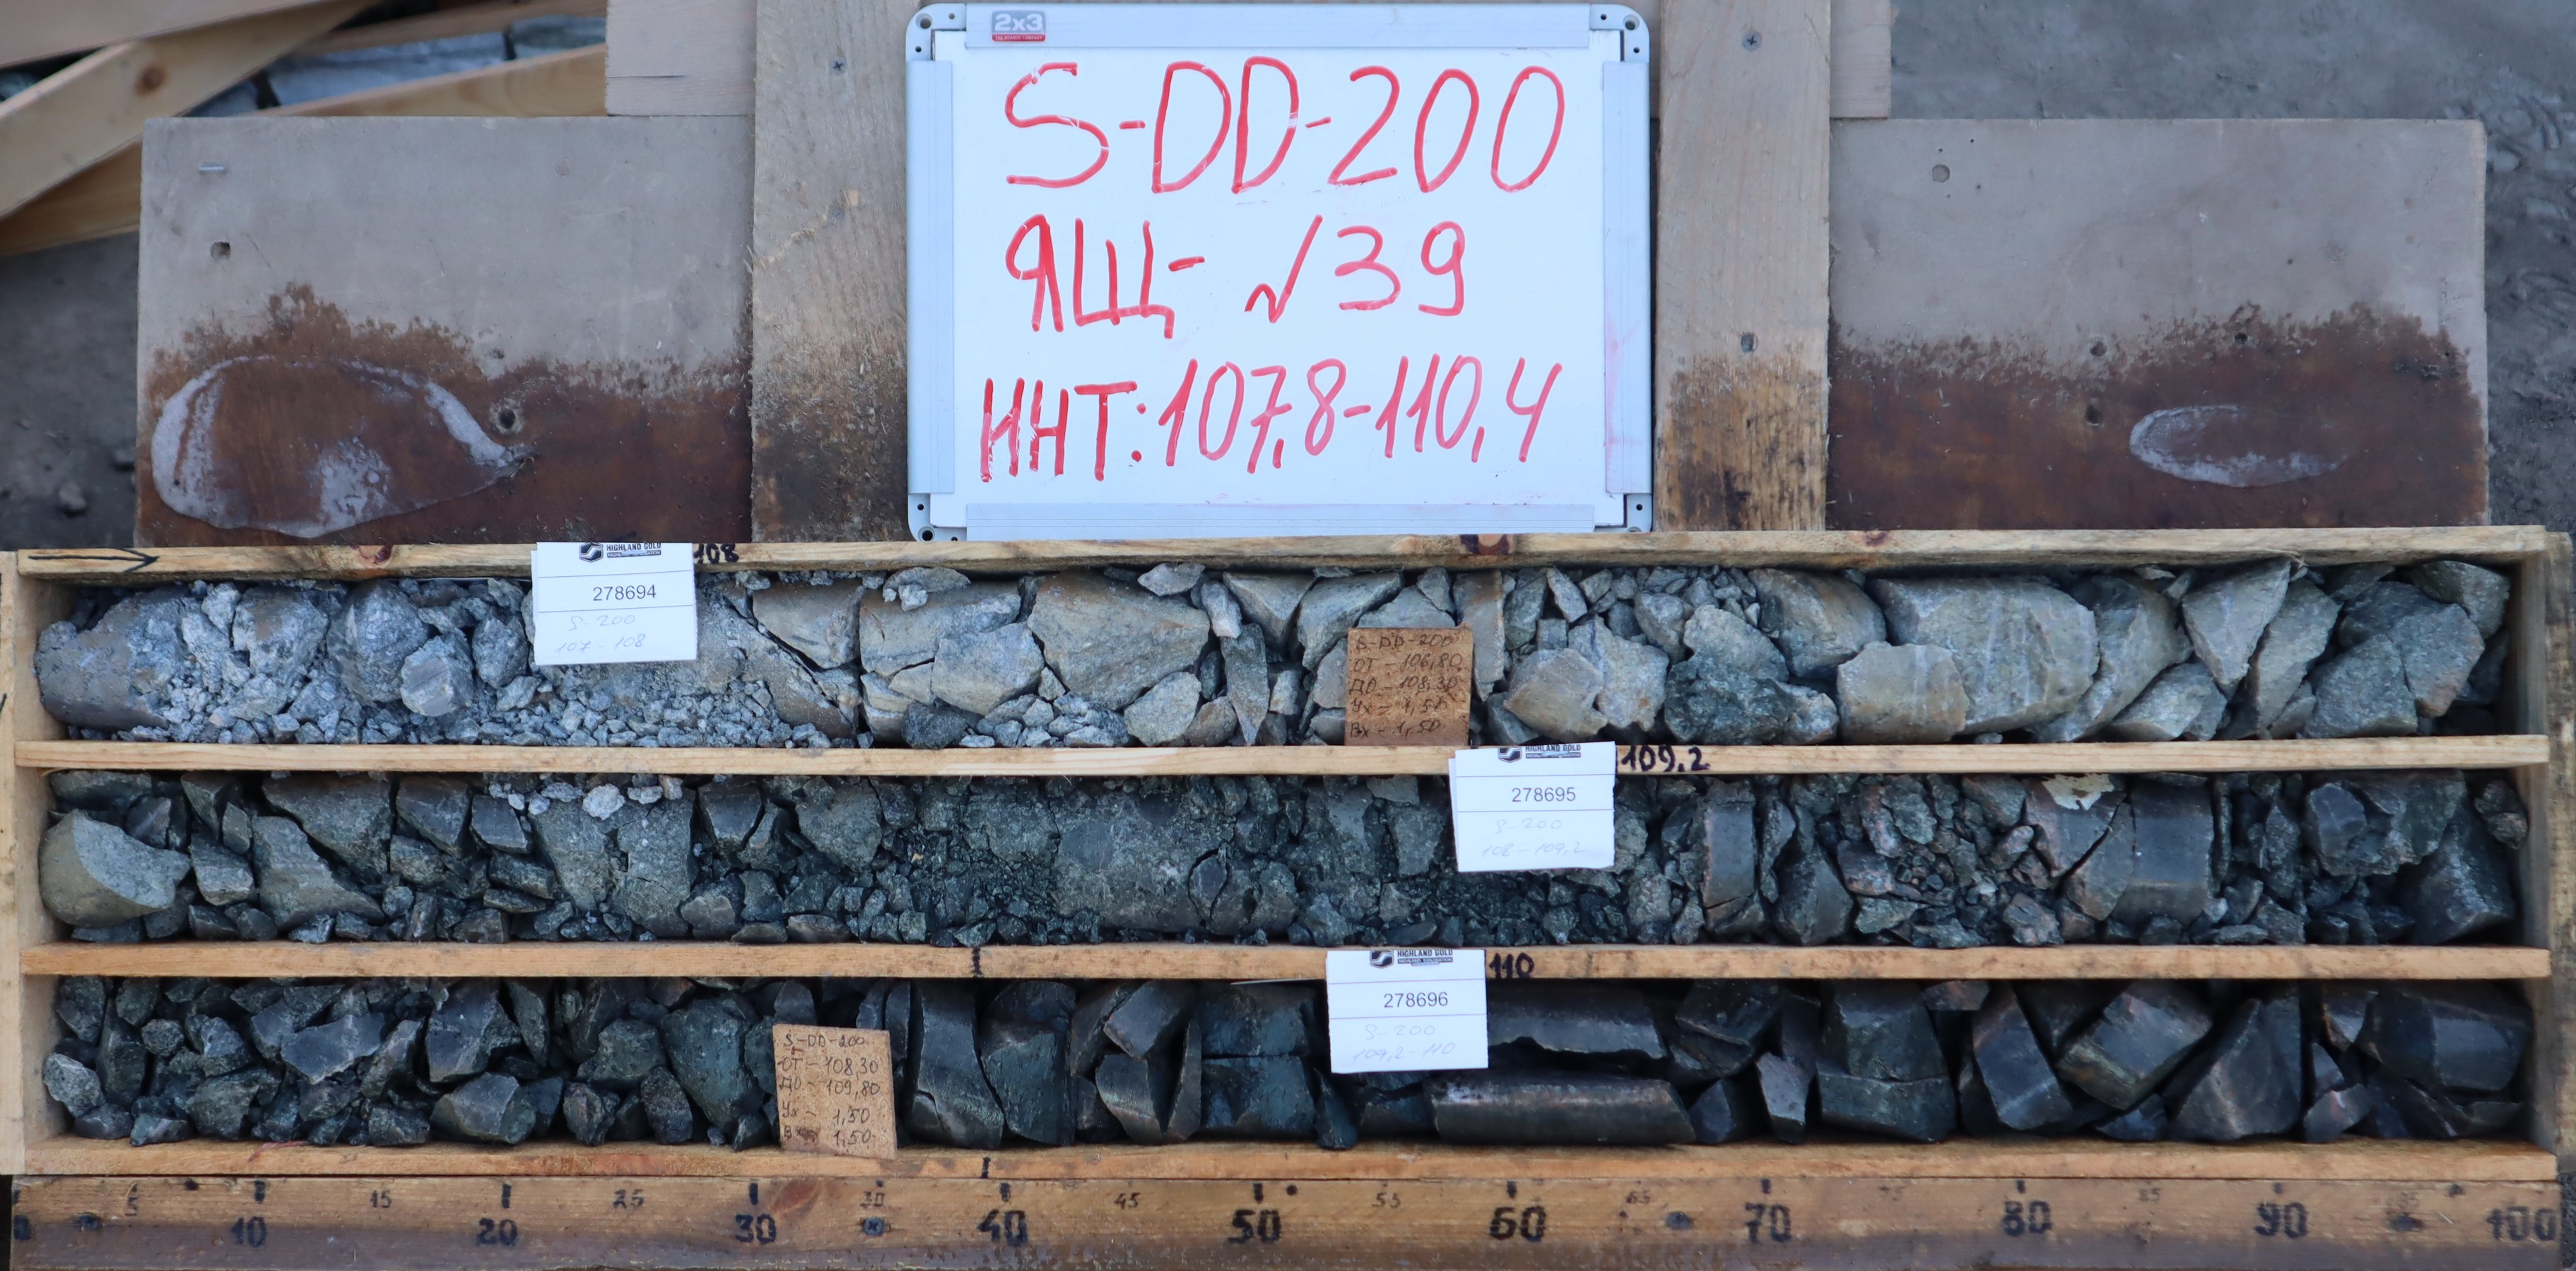 2x3
S-DD-200
ЯЩ- №39
ИНТ: 107,8-110,4
108
HIGHLAND GOLD
278694
S-200
107-108
S-DD-200
ОТ - 106,80
ДО - 108,30
Ух - 1,50
Вх - 1,50
109.2
HIGHLAND GOLD
278695
S-200
108-109,2
110
HIGHLAND GOLD
278696
S-200
109,2-110
S-DD-200
ОТ - 108,30
ДО - 109,80
Ух - 1,50
1,50
5 15 25 45 55 65 75 85
10 20 30 40 50 60 70 80 90 100